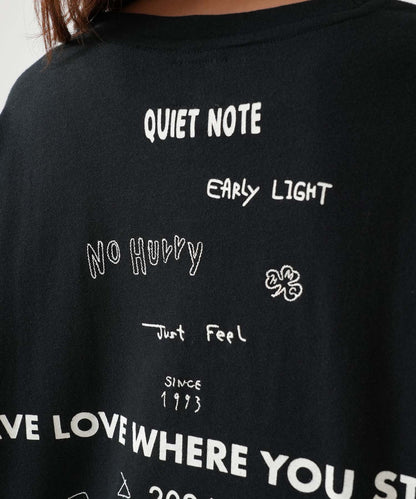 QUIET NOTE
EARLY LIGHT
No Hurry
Just Feel
SINCE
1993
LOVE WHERE YOU